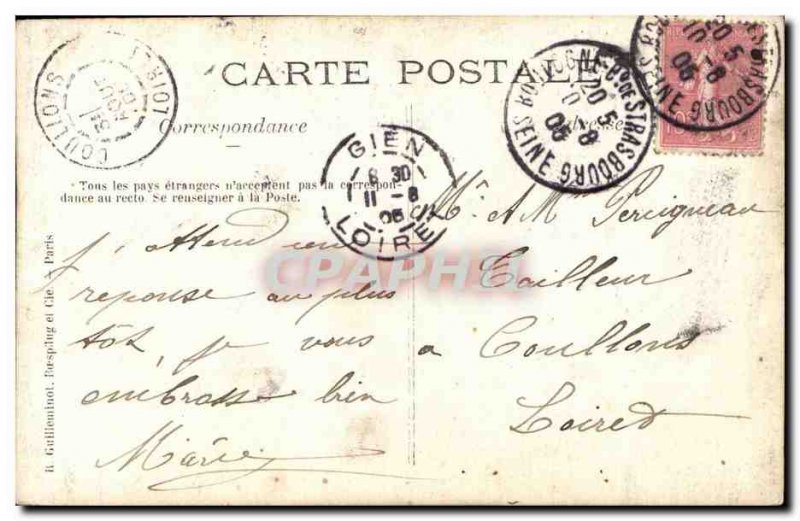 CARTE POSTALE
Correspondance
Adresse
Tous les pays étrangers n'acceptent pas la correspon-
dance au recto. Se renseigner à la Poste.
COULLONS
LOIRET
AOUT
GIEN
8 30
11 - 8
06
LOIRET
BOULOGNE-Bd DE STRASBOURG
20 5
10 - 8
06
SEINE
BOULOGNE-Bd DE STRASBOURG
20 5
10 - 8
06
SEINE
10
j'attend une
reponse au plus
tôt, je vous
embrasse bien
Marie
Mr & Mme
Tailleur
a Coullons
Loiret
R. Guilleminot, Bœspflug et Cie. - Paris
CPAPHIL